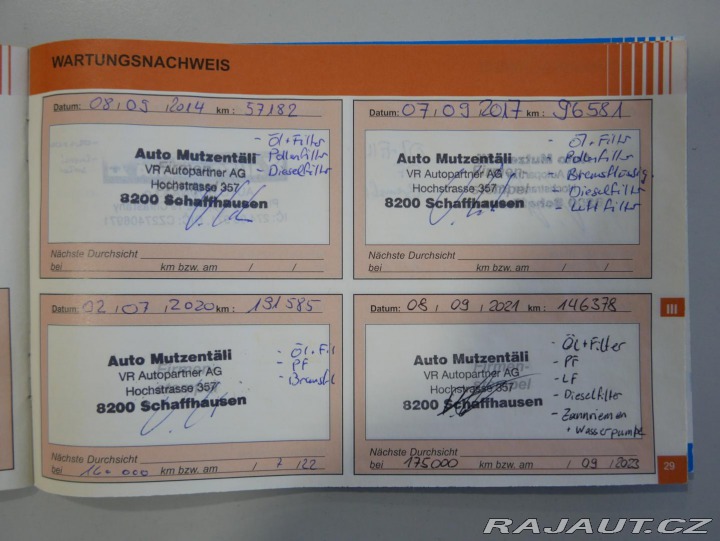 WARTUNGSNACHWEIS
Datum: 08 / 05 / 2014 km : 57182
- Öl + Filter
Pollenfilter
- Dieselfilter
Auto Mutzentäli
VR Autopartner AG
Hochstrasse 357
8200 Schaffhausen
Nächste Durchsicht
bei km bzw. am / /
Datum: 07 / 09 / 2017 km : 96581
- Öl + Filter
- Pollenfilter
- Bremsflüssig.
- Dieselfilter
- Luftfilter
Auto Mutzentäli
VR Autopartner AG
Hochstrasse 357
8200 Schaffhausen
Nächste Durchsicht
bei km bzw. am / /
Datum: 02 / 07 / 2020 km : 131585
- Öl + Fil
- PF
- Bremsfl
Auto Mutzentäli
VR Autopartner AG
Hochstrasse 357
8200 Schaffhausen
Nächste Durchsicht
bei 160000 km bzw. am / 7 / 22
Datum: 08 / 09 / 2021 km : 146378
- Öl + Filter
- PF
- LF
- Dieselfilter
- Zannriemen
+ Wasserpumpe
Auto Mutzentäli
VR Autopartner AG
Hochstrasse 357
8200 Schaffhausen
Nächste Durchsicht
bei 175000 km bzw. am / 09 / 2023
III
29
RAJAUT.CZ